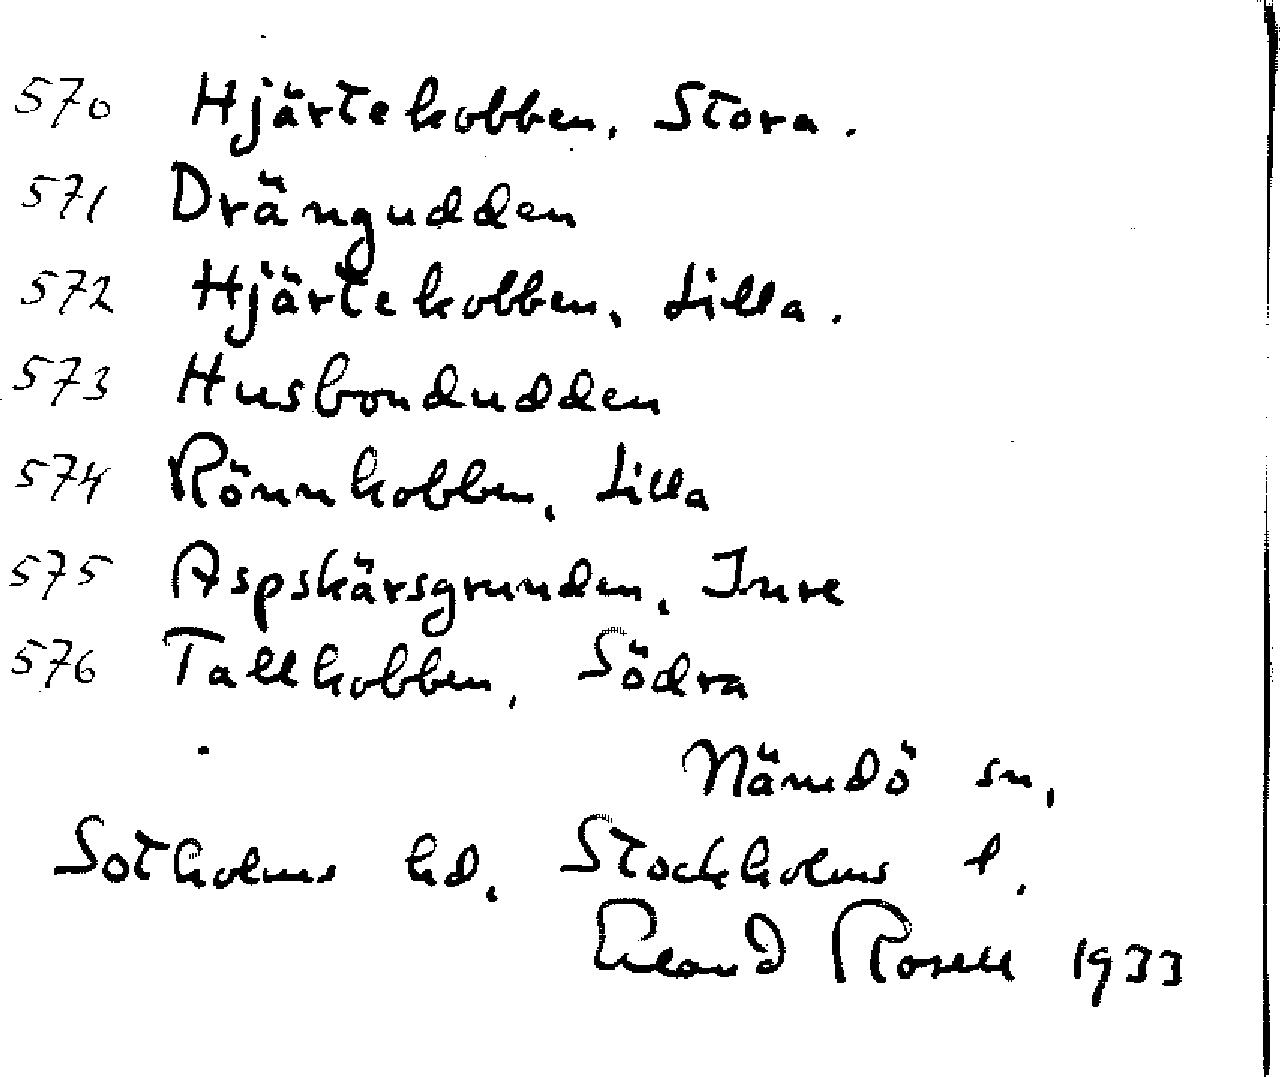 570 Hjärtekobben, Stora.
571 Drängudden
572 Hjärtekobben, Lilla.
573 Husbondudden
574 Rönnkobben, Lilla
575 Aspskärsgrunden, Inre
576 Tallkobben, Södra
Nämdö sn,
Sotholms hd, Stockholms l.
Erland Rosell 1933